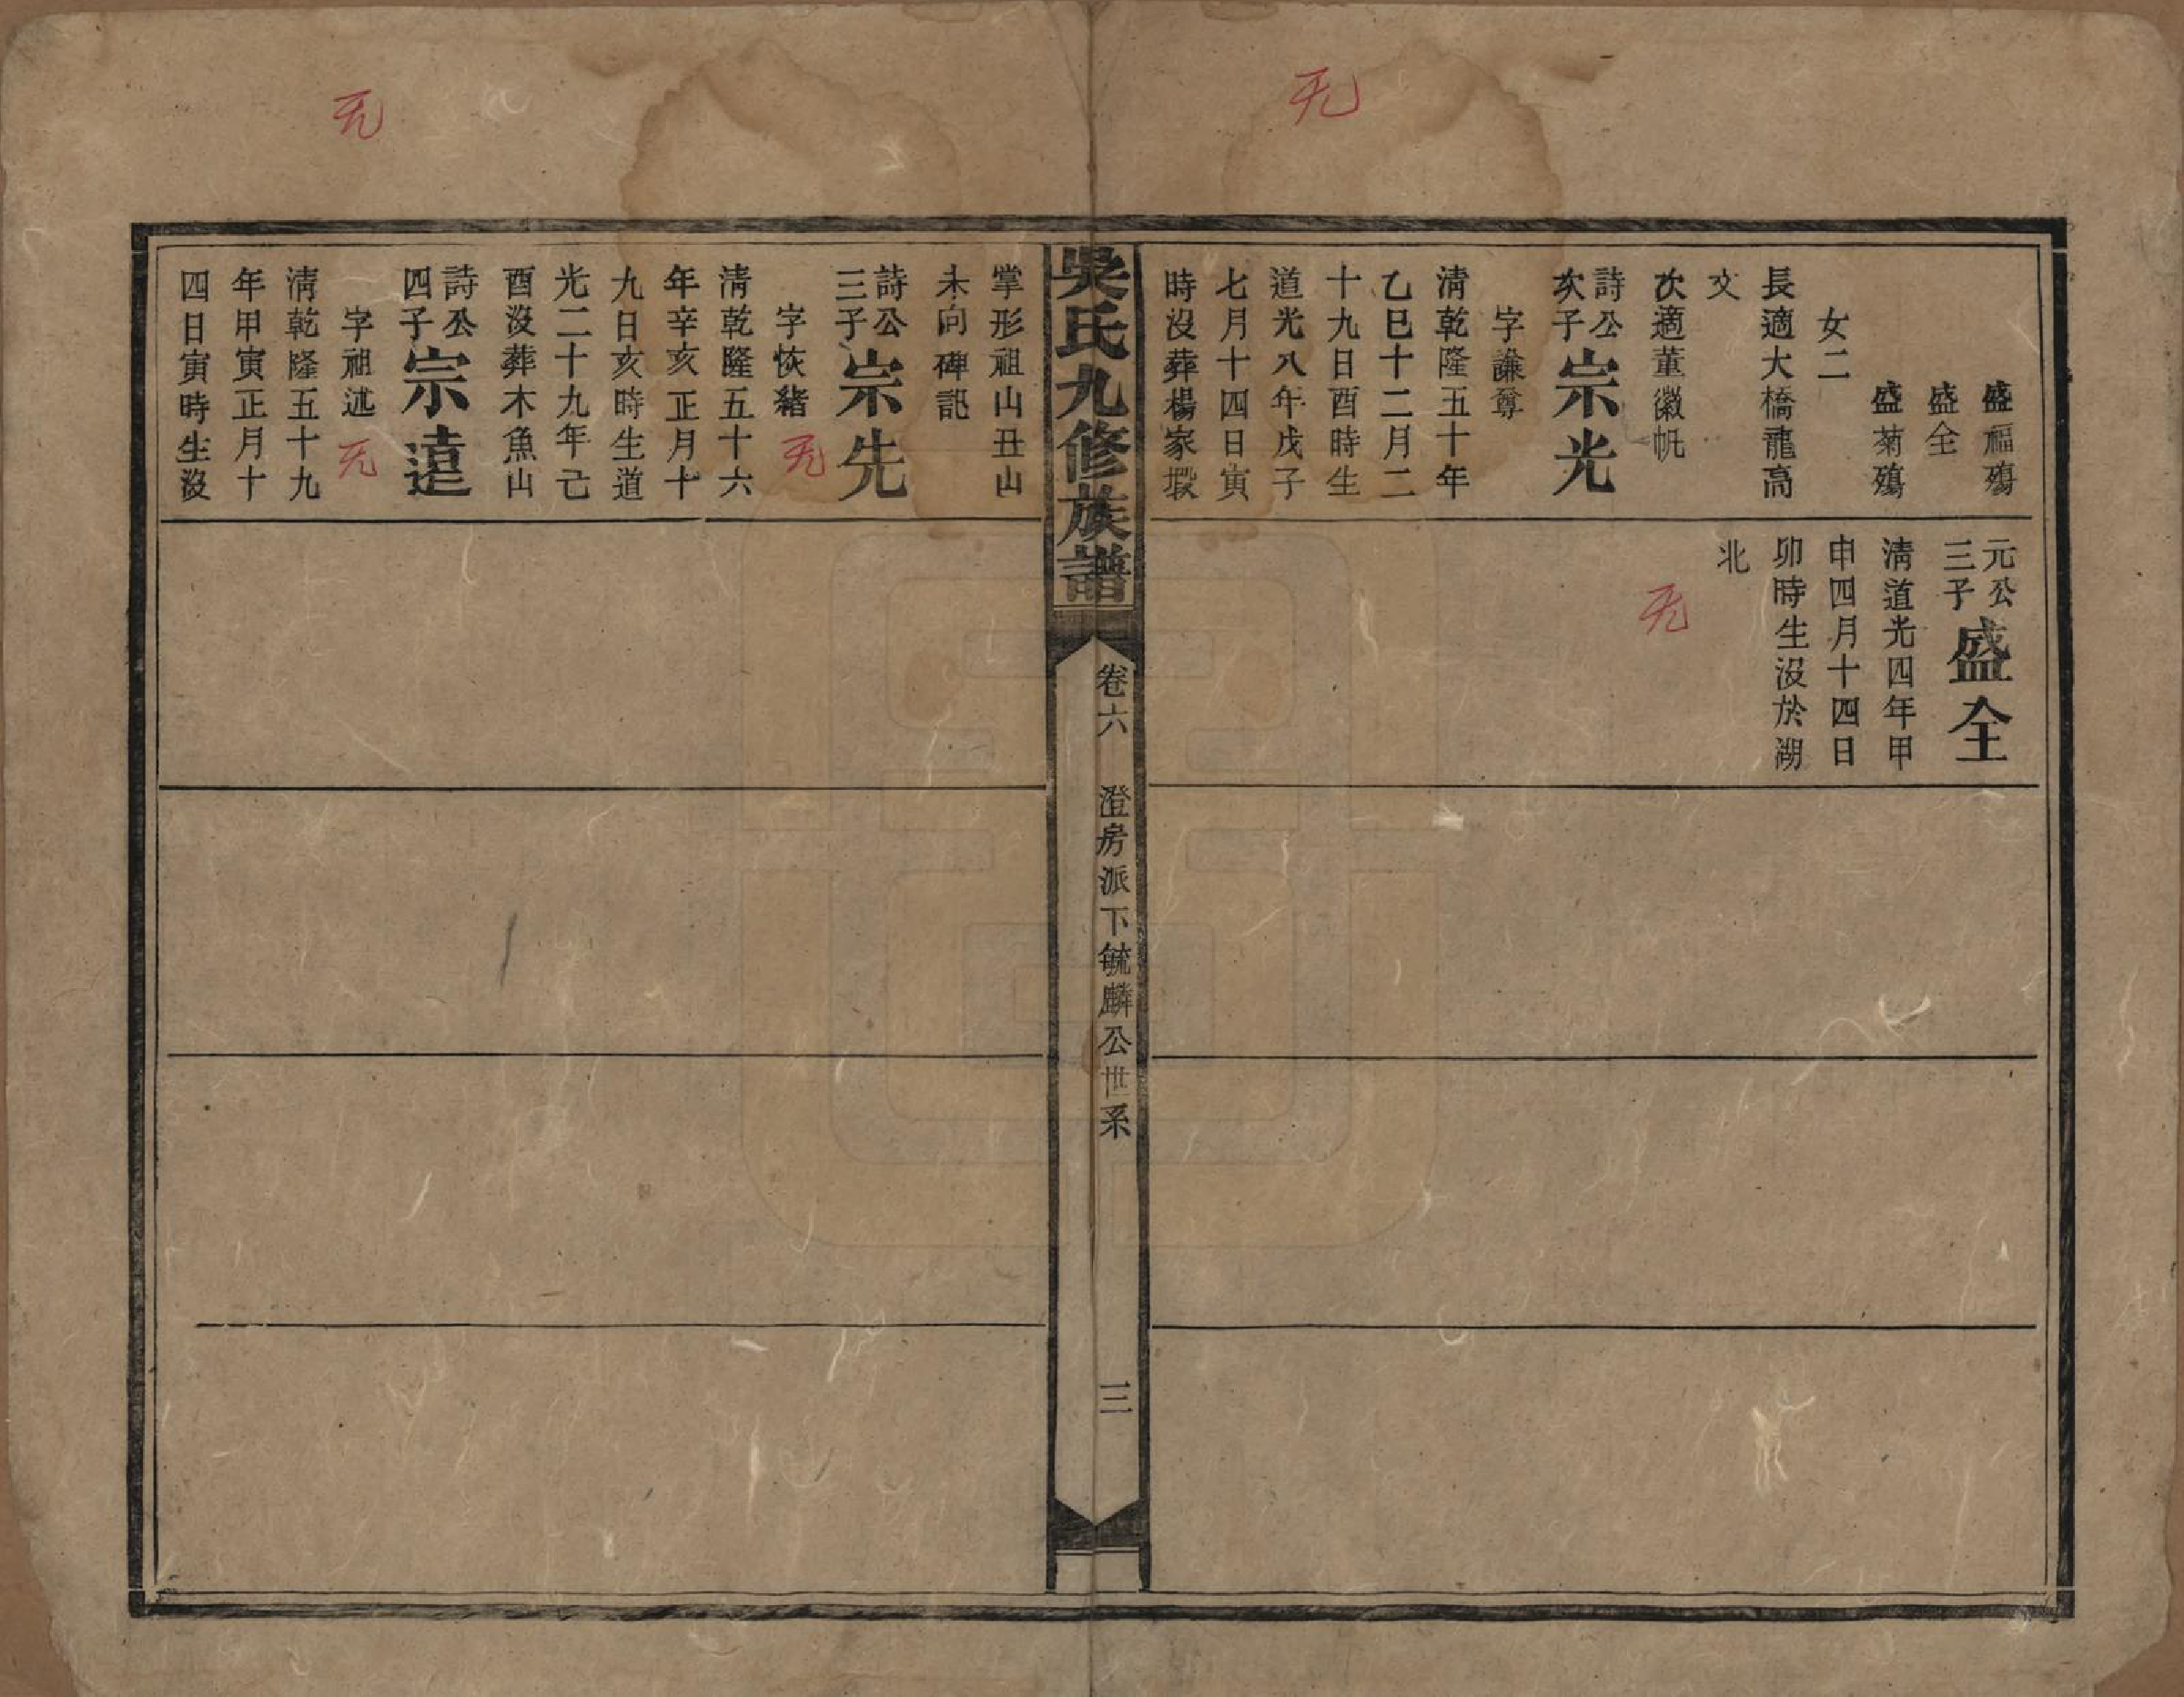 无
无
盛福殤
盛全
盛菊殤
女二
長適大橋龍高
文
次適董徽帆
詩公
次子
宗光
字謙尊
清乾隆五十年
乙巳十二月二
十九日酉時生
道光八年戊子
七月十四日寅
時沒葬楊家塅
元公
三子
盛全
清道光四年甲
申四月十四日
卯時生沒於湖
北
无
吳氏九修族譜
卷六
澄房派下毓麟公世系
三
掌形祖山丑山
未向碑誌
詩公
三子
宗先
字恢緒
无
清乾隆五十六
年辛亥正月十
九日亥時生道
光二十九年己
酉沒葬木魚山
詩公
四子
宗遠
字祖述
无
清乾隆五十九
年甲寅正月十
四日寅時生沒